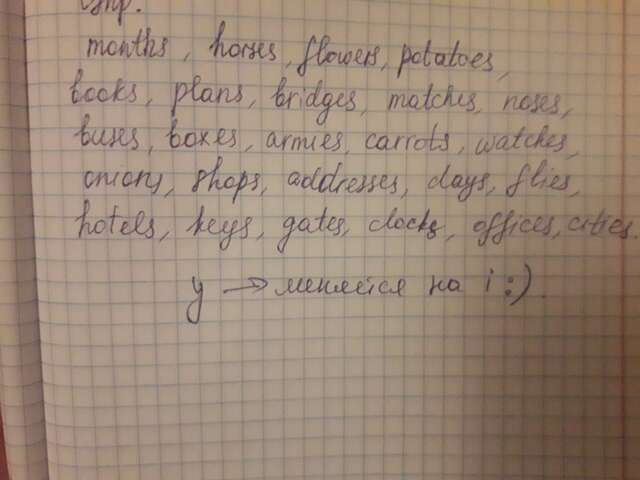 Упр.
months, horses, flowers, potatoes,
books, plans, bridges, matches, noses,
buses, boxes, armies, carrots, watches,
onions, shops, addresses, days, flies,
hotels, keys, gates, clocks, offices, cities.
y → меняется на i :).